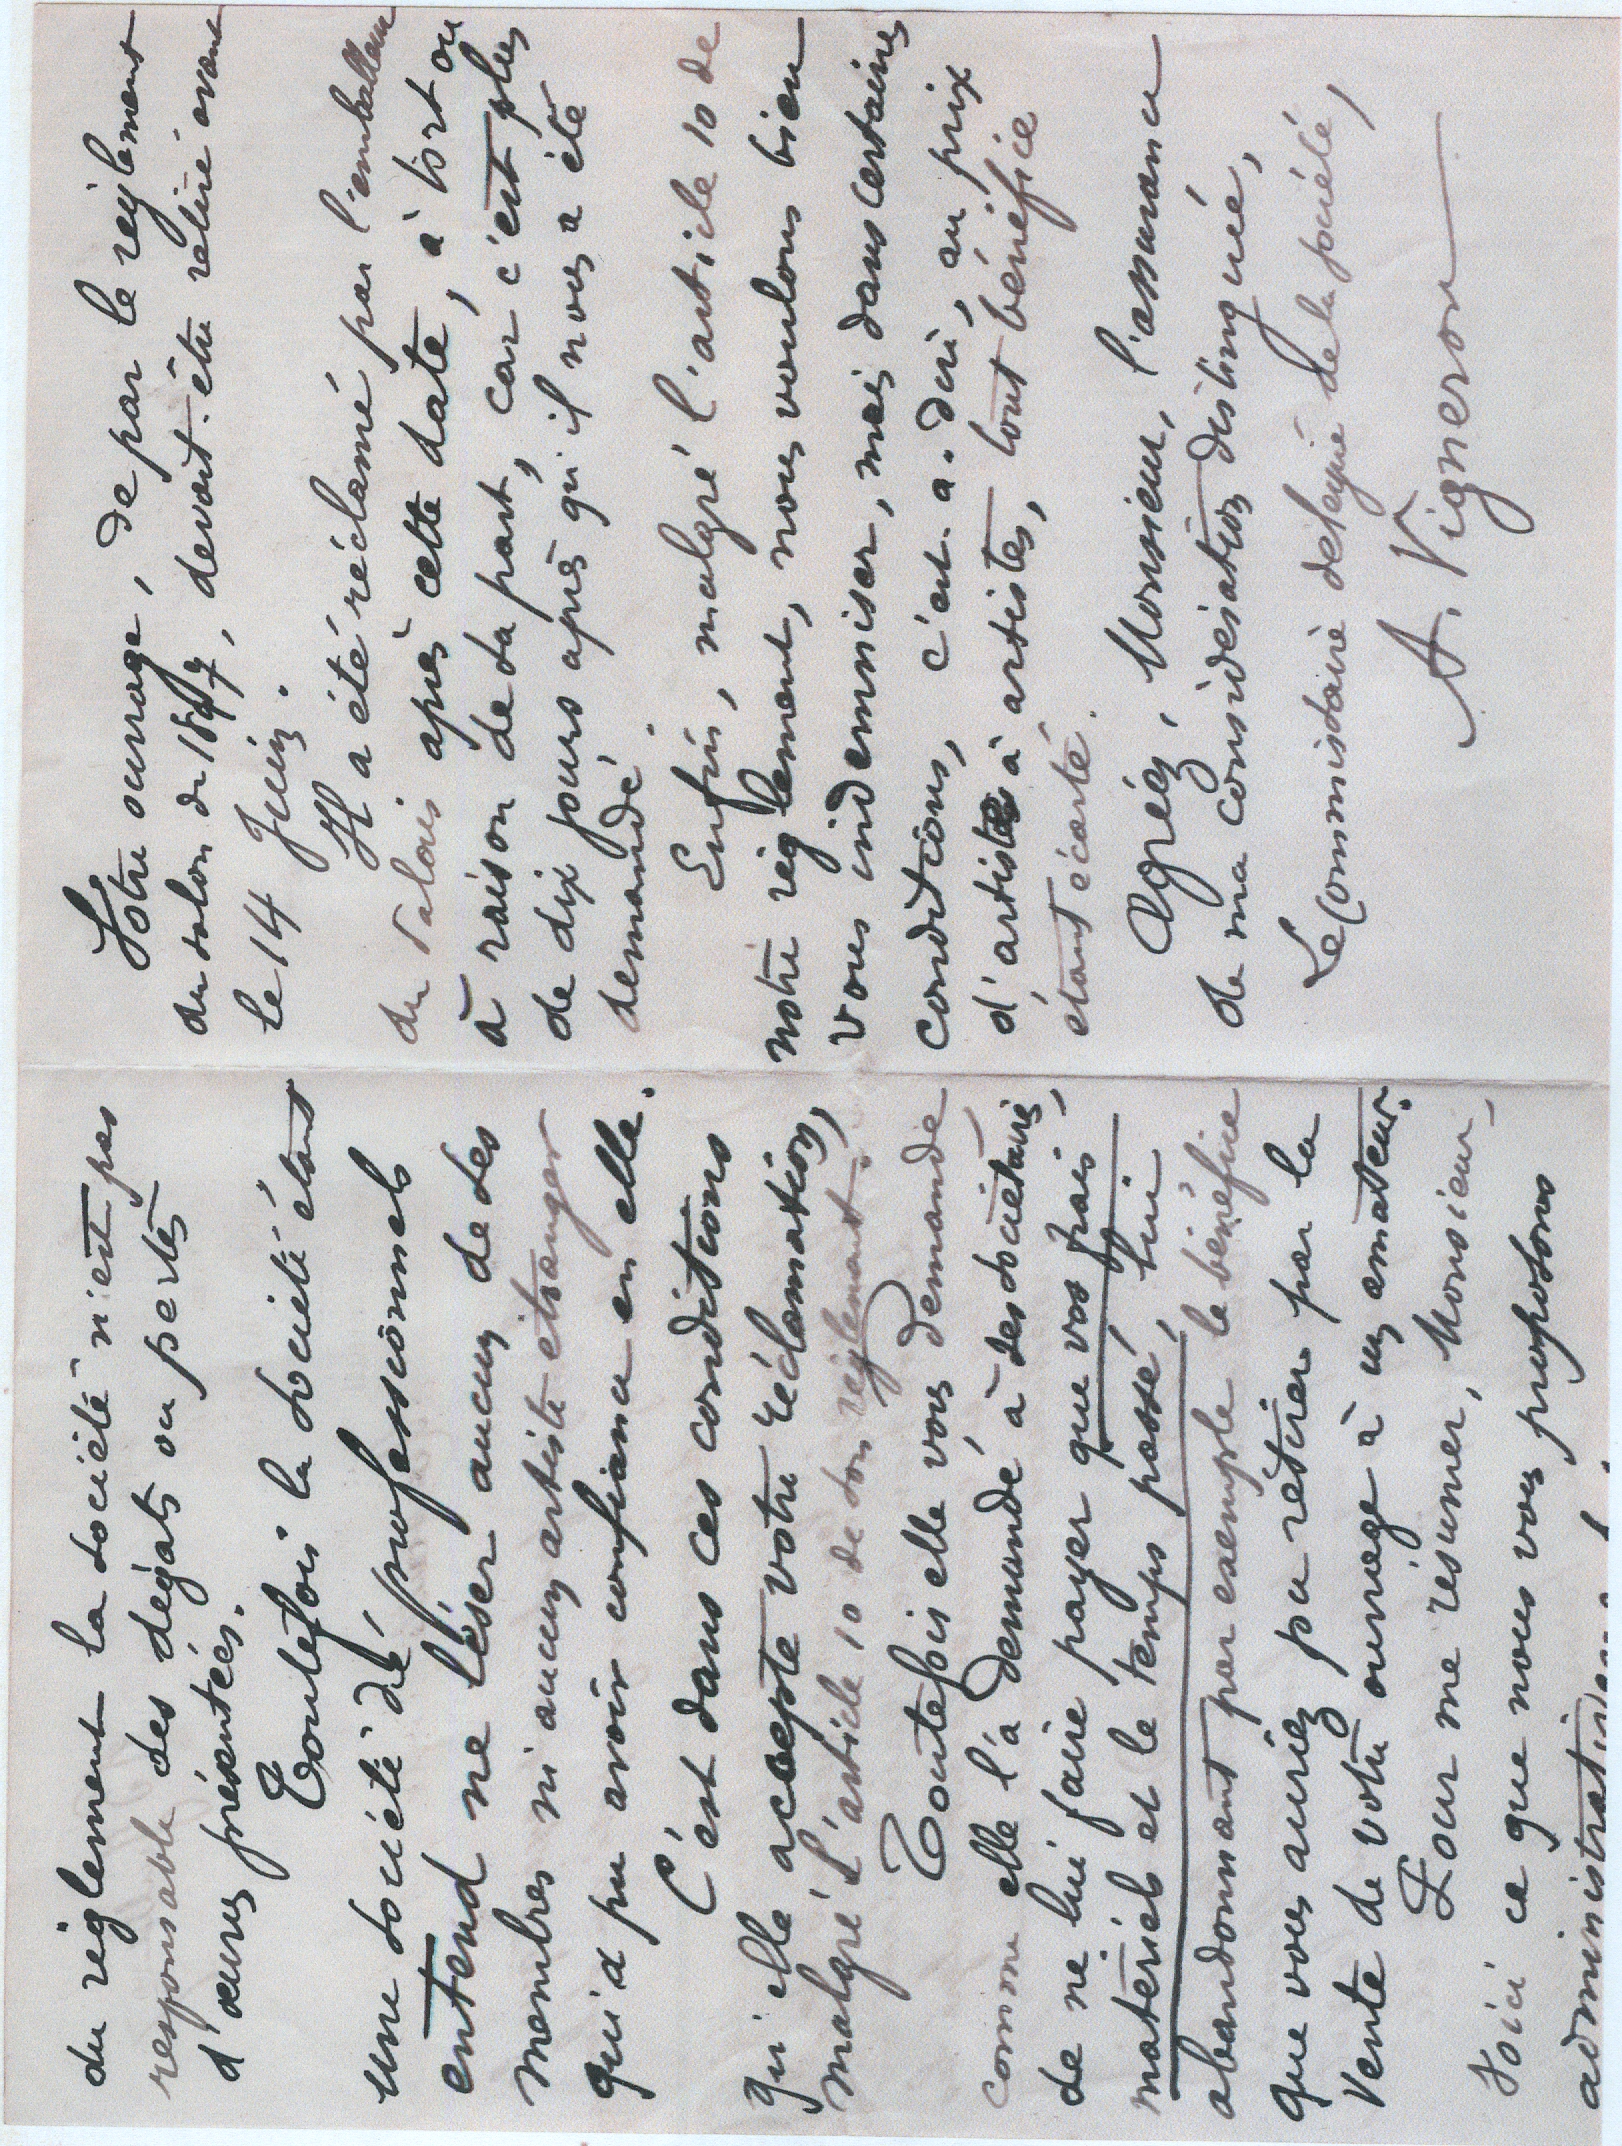 du règlement la société n'est pas
responsable des dégats ou pertes
d'œuvres présentées.
Toutefois la société étant
une société de professionnels
entend ne léser aucun de ses
membres ni aucun artiste étranger
qui a pu avoir confiance en elle.
C'est dans ces conditions
qu'elle accepte votre réclamation,
malgré l'article 10 de son règlement.
Toutefois elle vous demande
comme elle l'a demandé à des sociétaires,
de ne lui faire payer que vos frais
matériels et le temps passé, lui
abandonnant par exemple le bénéfice
que vous auriez pu retirer par la
vente de votre ouvrage à un amateur.
Pour me résumer, Monsieur,
Voici ce que nous vous proposons
administrativement
Votre ouvrage, de par le règlement
du salon de 1897, devait être retiré avant
le 14 Juin.
Il a été réclamé par l'emballeur
du Valois après cette date, à tort ou
à raison de sa part, car c'est plus
de dix jours après qu'il nous a été
demandé.
Enfin, malgré l'article 10 de
notre règlement, nous voulons bien
vous indemniser, mais dans certaines
conditions, c'est-a-dire, au prix
d'artistes à artistes, tout bénéfice
étant écarté.
Agréez, Monsieur, l'assurance
de ma considération distinguée,
Le Commissaire délégué de la société,
A. Vigneron